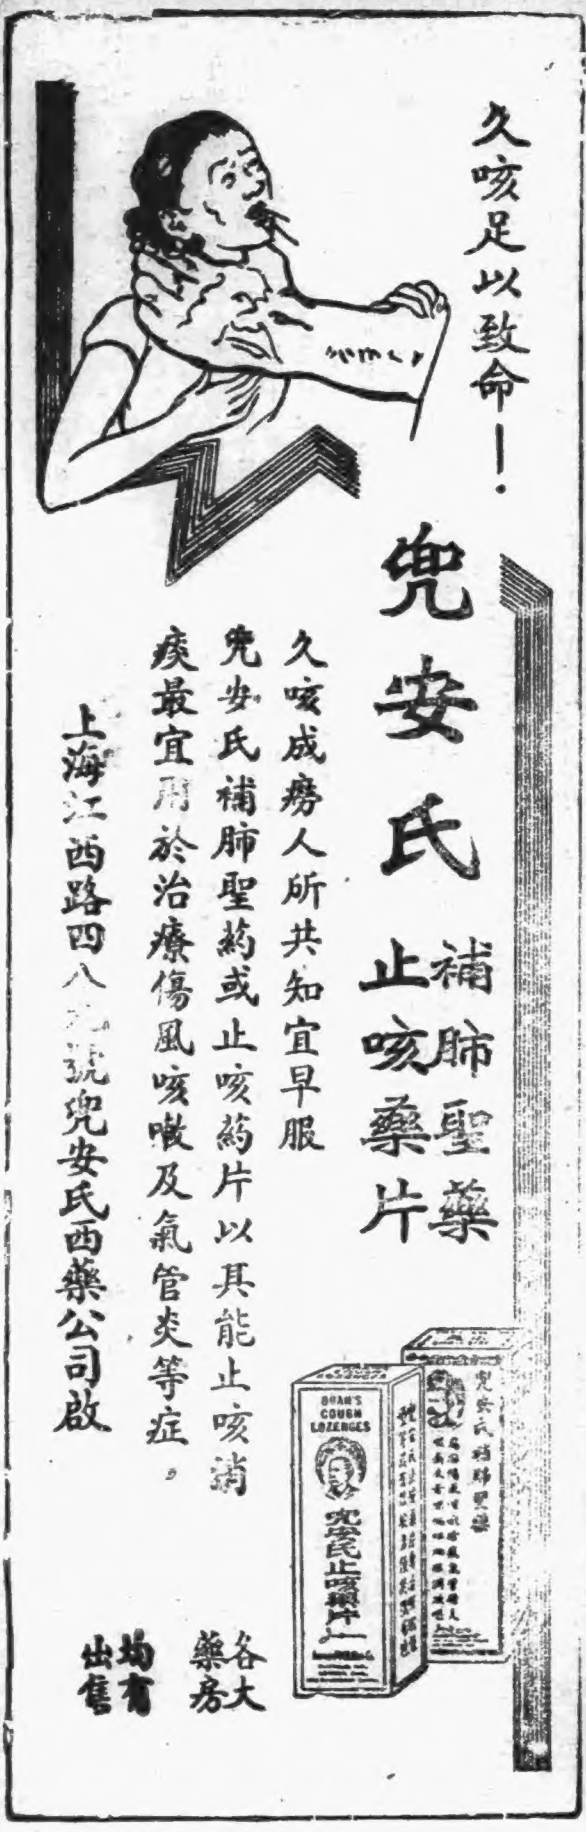 久咳足以致命！
兜安氏
補肺聖藥
止咳藥片
久咳成癆人所共知宜早服
兜安氏補肺聖葯或止咳葯片以其能止咳消
痰最宜用於治療傷風咳嗽及氣管炎等症。
上海江西路四八九號兜安氏西藥公司啟
兜安氏補肺聖藥
DOAN'S
COUGH
LOZENGES
兜安氏止咳藥片
各大
藥房
均有
出售